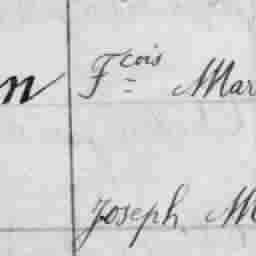 n F^cois Mar
Joseph M